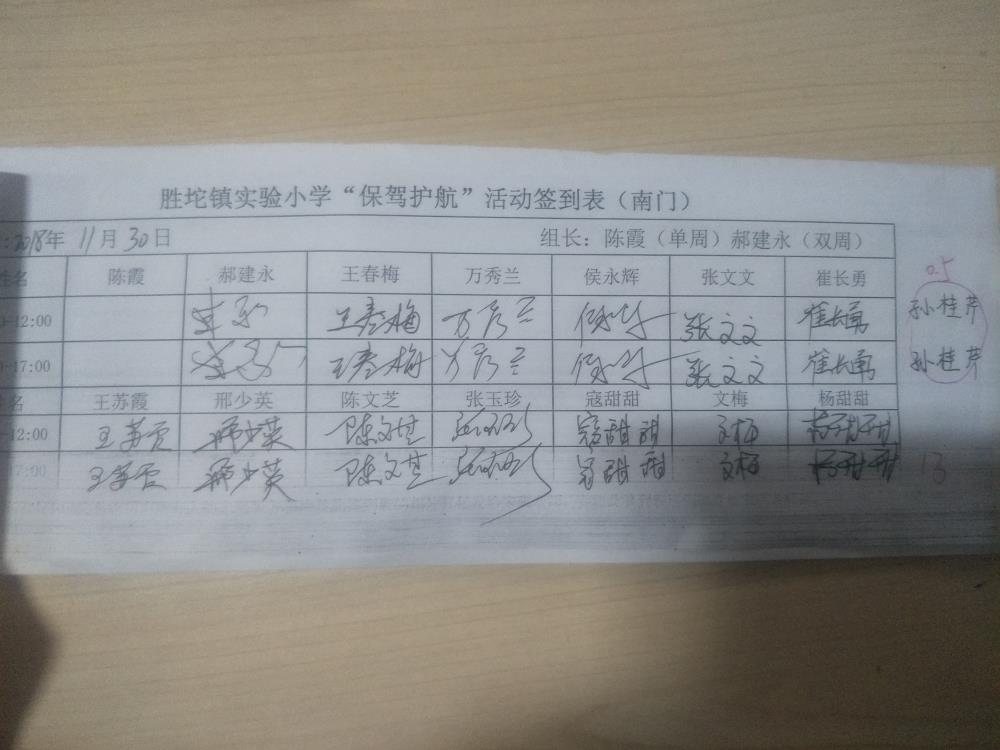 胜坨镇实验小学“保驾护航”活动签到表（南门）
:2018年 11月30日 组长：陈霞（单周）郝建永（双周）
姓名 陈霞 郝建永 王春梅 万秀兰 侯永辉 张文文 崔长勇 0.5
-12:00 王春梅 万秀兰 张文文 崔长勇 孙桂芹
-17:00 王春梅 万秀兰 张文文 崔长勇 孙桂芹
姓名 王苏霞 邢少英 陈文芝 张玉珍 寇甜甜 文梅 杨甜甜
-12:00 王苏霞 邢少英 陈文芝 张玉珍 寇甜甜 文梅 杨甜甜
17:00 王苏霞 邢少英 陈文芝 张玉珍 寇甜甜 文梅 杨甜甜 13